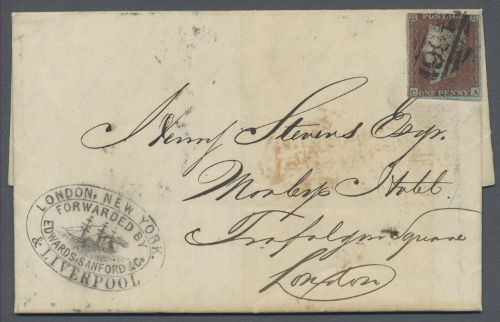 POSTAGE
466
C A
ONE PENNY
Henry Stevens Esq.
Morley's Hotel.
Trafalgar Square
London
LONDON, NEW YORK
FORWARDED BY
EDWARDS, SANFORD & Co
& LIVERPOOL